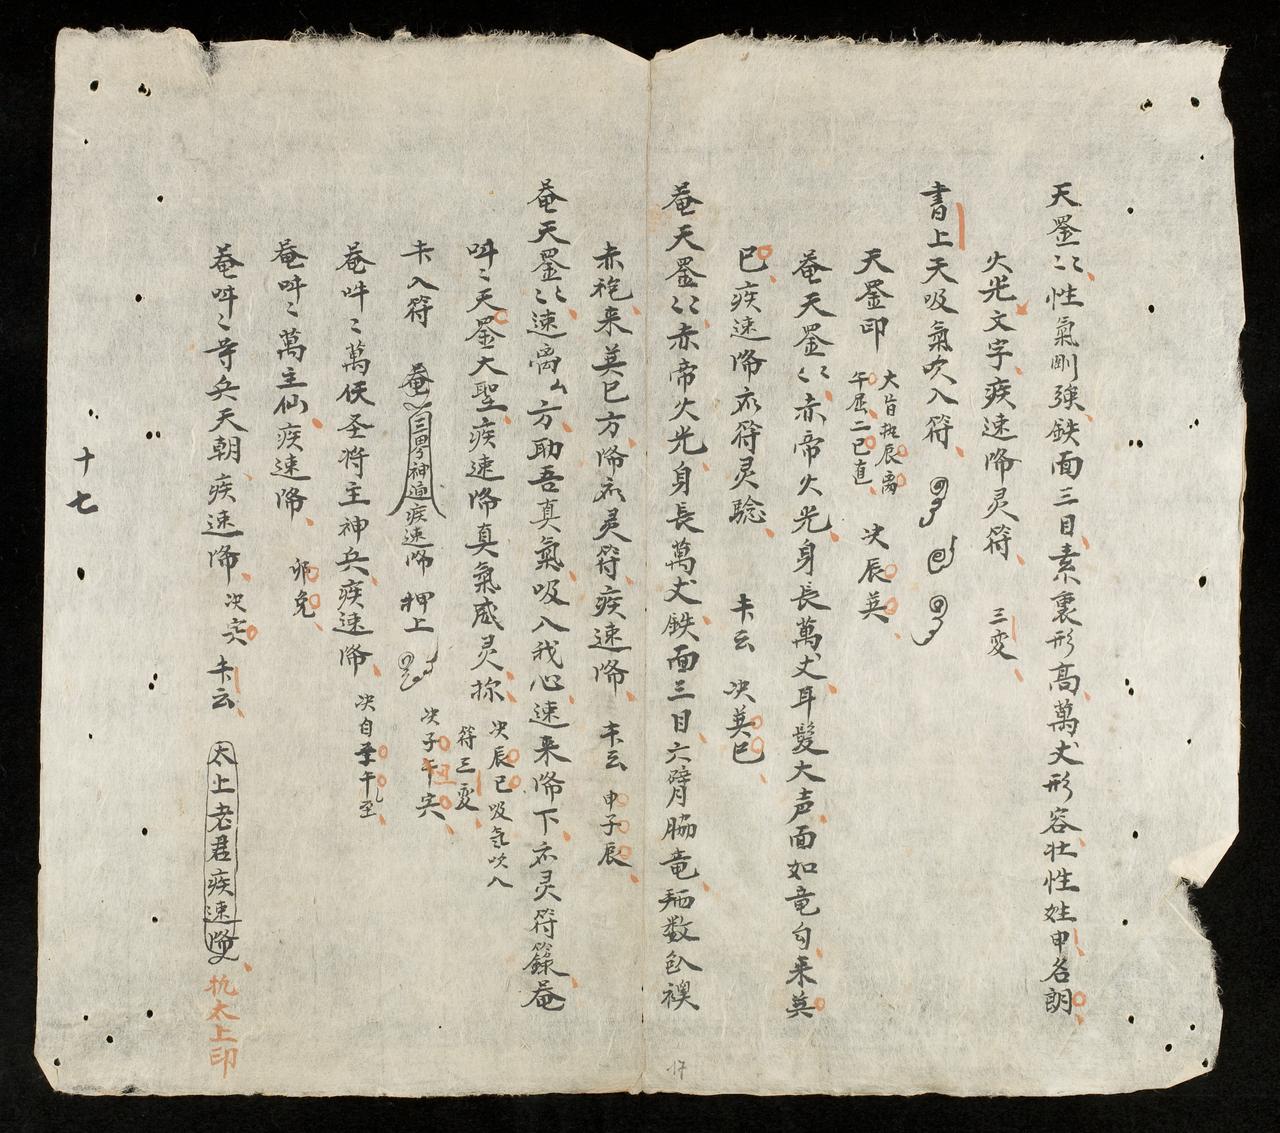 天罡〻性氣剛強鉄面三目素裏形高萬丈形容壮性姓申名朗
火光文字疾速降灵符 三変
書上天吸氣吹入符
天罡印 大旨 辰离 午屈二巳直 决辰英
菴天罡〻赤帝火光身長萬丈耳髮大声面如竜勾来英
巳疾速降於符灵騐 卡云 决英巳
菴天罡〻赤帝火光身長萬丈鉄面三目六臂 竜 数 襖
赤袍来英巳方降於灵符疾速降 卡云 申子辰
菴天罡〻速离 方助吾真氣吸入我心速来降下於灵符籙菴
吽〻天罡大聖疾速降真氣威灵 决辰巳吸氣吹入符三変
卡入符 菴 神 疾速降 押上 决子午寅
菴吽〻萬伏圣将主神兵疾速降 决自 午至
菴吽〻萬主仙疾速降 卯兔
菴吽〻等兵天朝疾速降 决寅 卡云 太上老君疾速降 太上印
十七